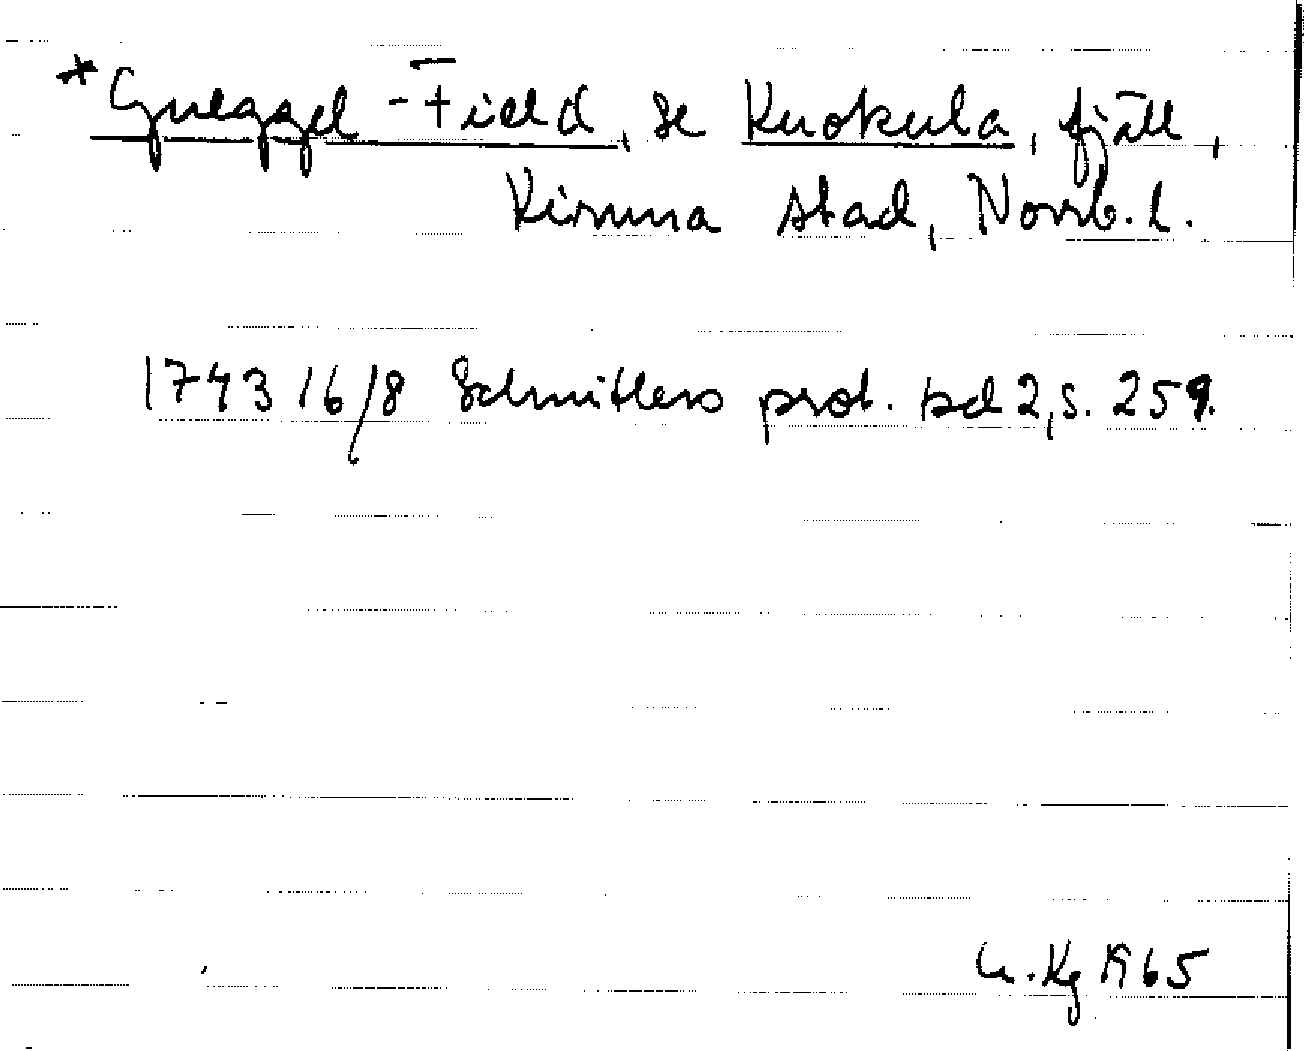 *Gueggel-Field, se Kuokula, fjäll,
Kiruna stad, Norrb. l.
1743 16/8 Schnitlers prot. bd 2, s. 259.
Kg 1965